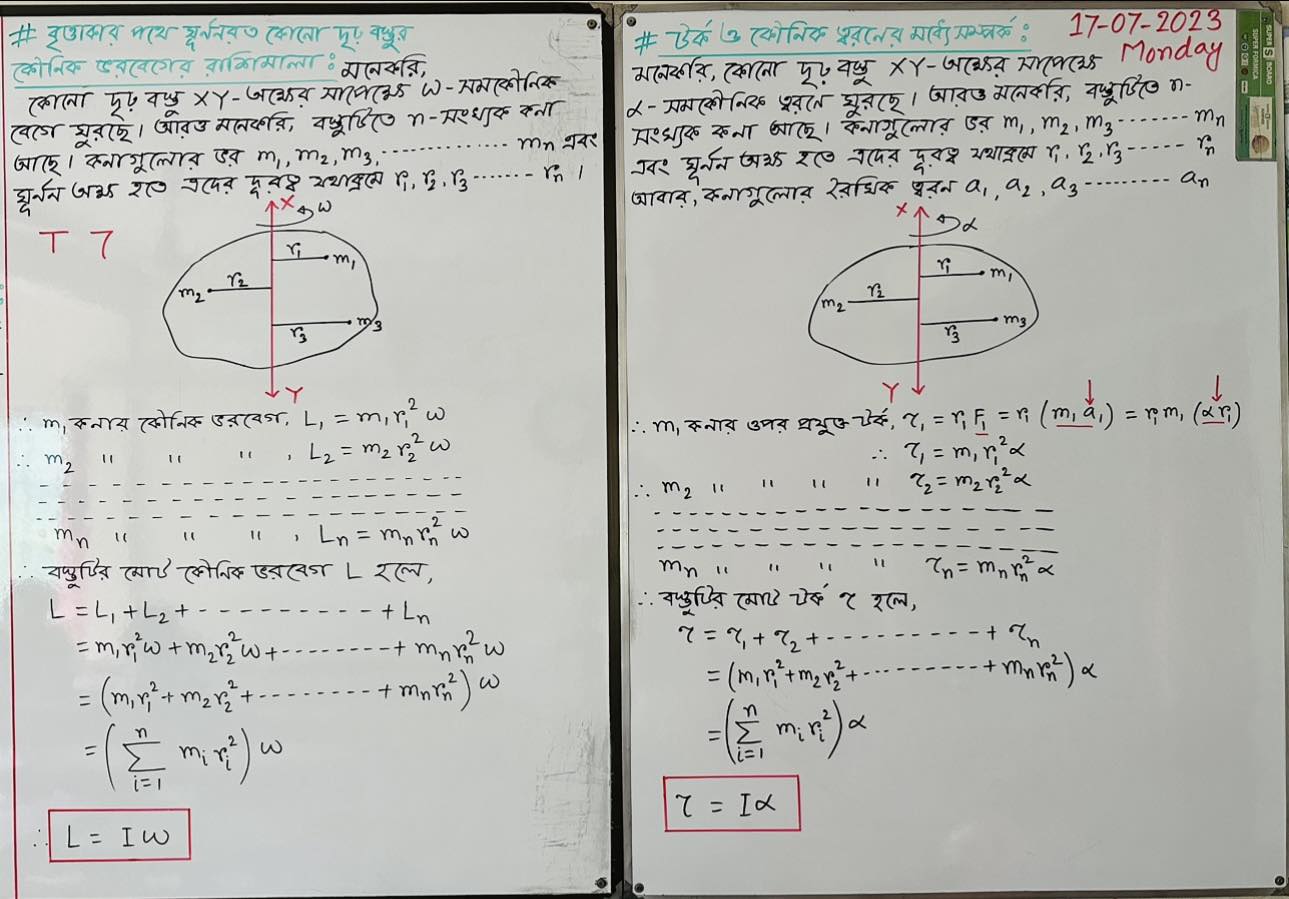 # বৃত্তাকার পথে ঘূর্ননরত কোনো দৃঢ় বস্তুর
কৌনিক ভরবেগের রাশিমালা : মনেকরি,
কোনো দৃঢ় বস্তু XY-অক্ষের সাপেক্ষে ω-সমকৌনিক
বেগে ঘুরছে। আরও মনেকরি, বস্তুটিতে n-সংখ্যক কনা
আছে। কনাগুলোর ভর m₁, m₂, m₃, .............. mₙ এবং
ঘূর্নন অক্ষ হতে এদের দূরত্ব যথাক্রমে r₁, r₂, r₃ ....... rₙ ।
X ω
T 7
r₁ m₁
m₂ r₂
r₃ m₃
Y
∴ m₁ কনার কৌনিক ভরবেগ, L₁ = m₁r₁²ω
∴ m₂ " " " , L₂ = m₂r₂²ω
mₙ " " " , Lₙ = mₙrₙ²ω
∴ বস্তুটির মোট কৌনিক ভরবেগ L হলে,
L = L₁ + L₂ + - - - - - - - - - - + Lₙ
= m₁r₁²ω + m₂r₂²ω + - - - - - - - - + mₙrₙ²ω
= (m₁r₁² + m₂r₂² + - - - - - - - - + mₙrₙ²) ω
= (∑ⁿᵢ₌₁ mᵢrᵢ²) ω
∴ L = Iω
17-07-2023
Monday
# টর্ক ও কৌনিক ত্বরনের মধ্যে সম্পর্ক :
মনেকরি, কোনো দৃঢ় বস্তু XY-অক্ষের সাপেক্ষে
α-সমকৌনিক ত্বরনে ঘুরছে। আরও মনেকরি, বস্তুটিতে n-
সংখ্যক কনা আছে। কনাগুলোর ভর m₁, m₂, m₃ ....... mₙ
এবং ঘূর্নন অক্ষ হতে এদের দূরত্ব যথাক্রমে r₁, r₂, r₃ ..... rₙ
আবার, কনাগুলোর রৈখিক ত্বরন a₁, a₂, a₃ ......... aₙ
X α
r₁ m₁
m₂ r₂
r₃ m₃
Y
∴ m₁ কনার ওপর প্রযুক্ত টর্ক, τ₁ = r₁F₁ = r₁ (m₁a₁) = r₁m₁ (αr₁)
∴ τ₁ = m₁r₁²α
∴ m₂ " " " " τ₂ = m₂r₂²α
mₙ " " " " τₙ = mₙrₙ²α
∴ বস্তুটির মোট টর্ক τ হলে,
τ = τ₁ + τ₂ + - - - - - - - - - - + τₙ
= (m₁r₁² + m₂r₂² + - - - - - - - - - + mₙrₙ²) α
= (∑ⁿᵢ₌₁ mᵢrᵢ²) α
τ = Iα
SUPER S BOARD
SUPER FORMICA